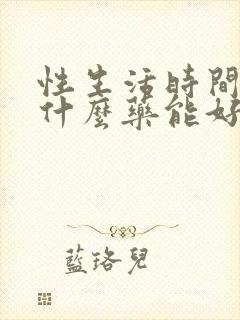 性生活時間
什麼藥能好
藍珞兒